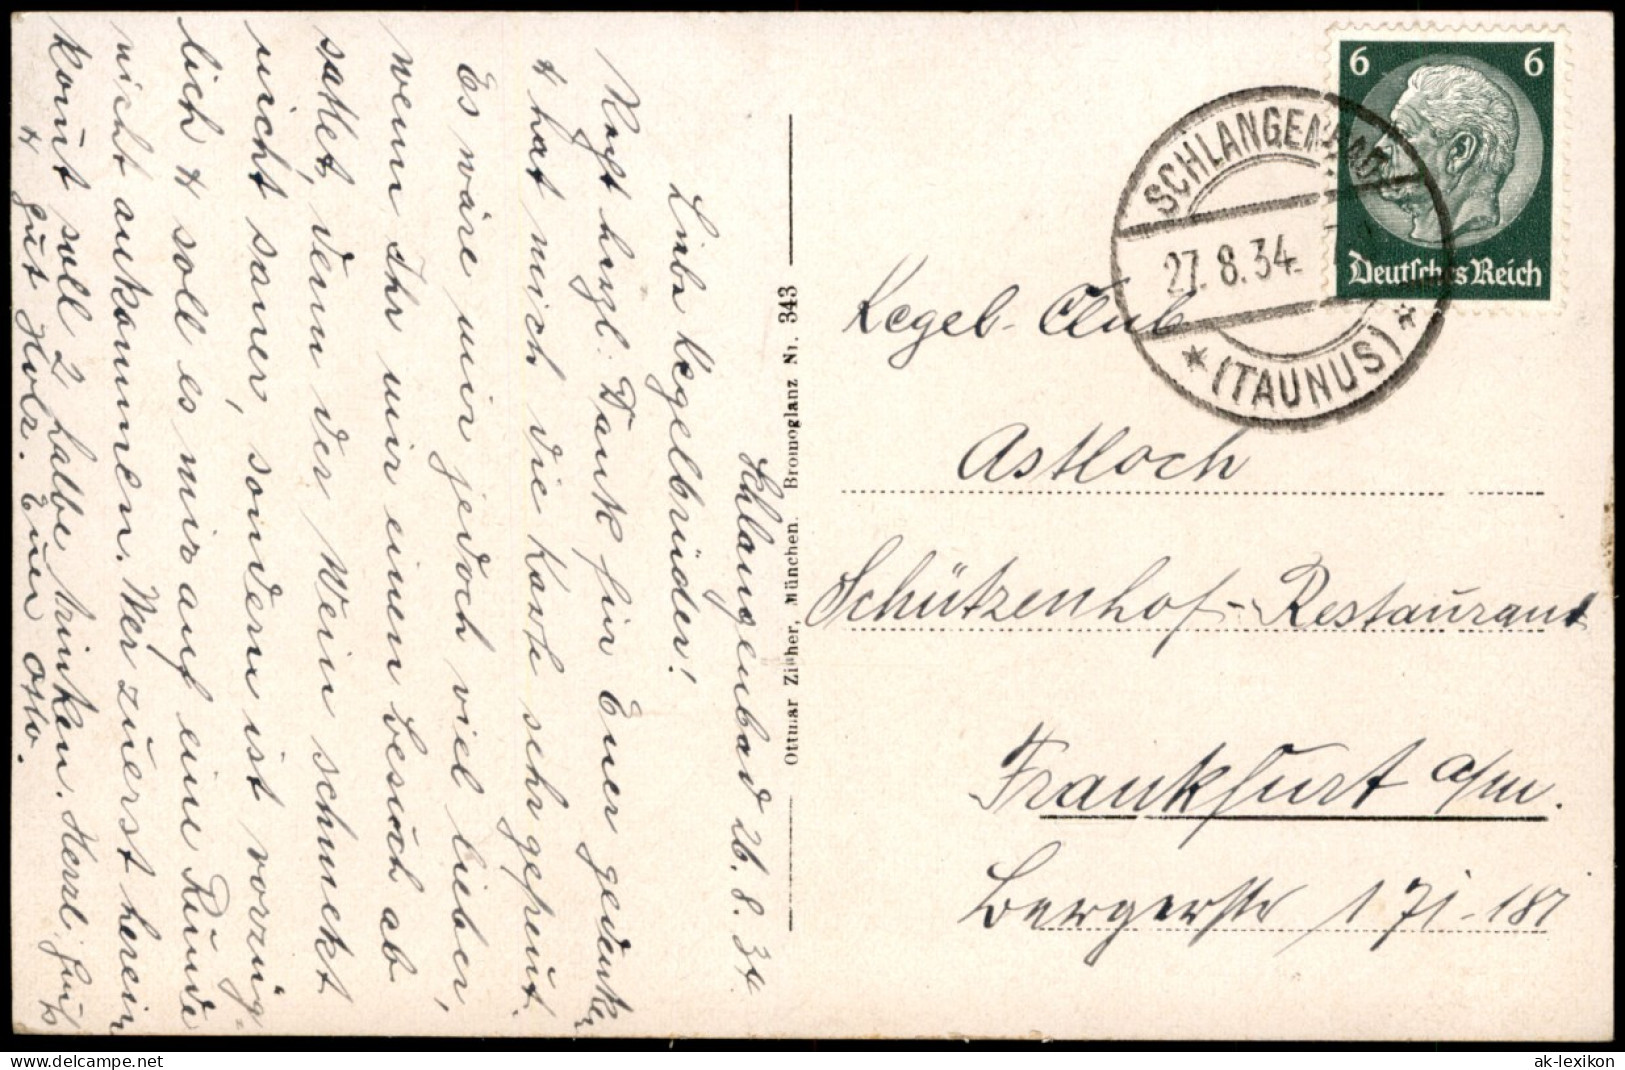 Schlangenbad 26. 8. 34.
Liebe Kegelbrüder!
Recht herzl. Dank für Euer gedenken
& hat mich die Karte sehr gefreut.
Es wäre mir jedoch viel lieber,
wenn Ihr mir einen Besuch ab
sattet, denn der Wein schmeckt
nicht sauer, sondern ist vorzüg-
lich & soll es mir auf eine Runde
nicht ankommen. Wer zuerst herein
komt soll 2 halbe trinken. Herzl. Gruß
& gut Holz. Euer Otto.
Ottmar Zieher, München. Bromoglanz Nr. 343
6 6
Deutsches Reich
SCHLANGENBAD
27. 8. 34.
* (TAUNUS) *
Kegel-Club
Astloch
Schützenhof-Restaurant
Frankfurt a/m.
Bergerstr 171-181
hippostcard.com
ak-lexikon